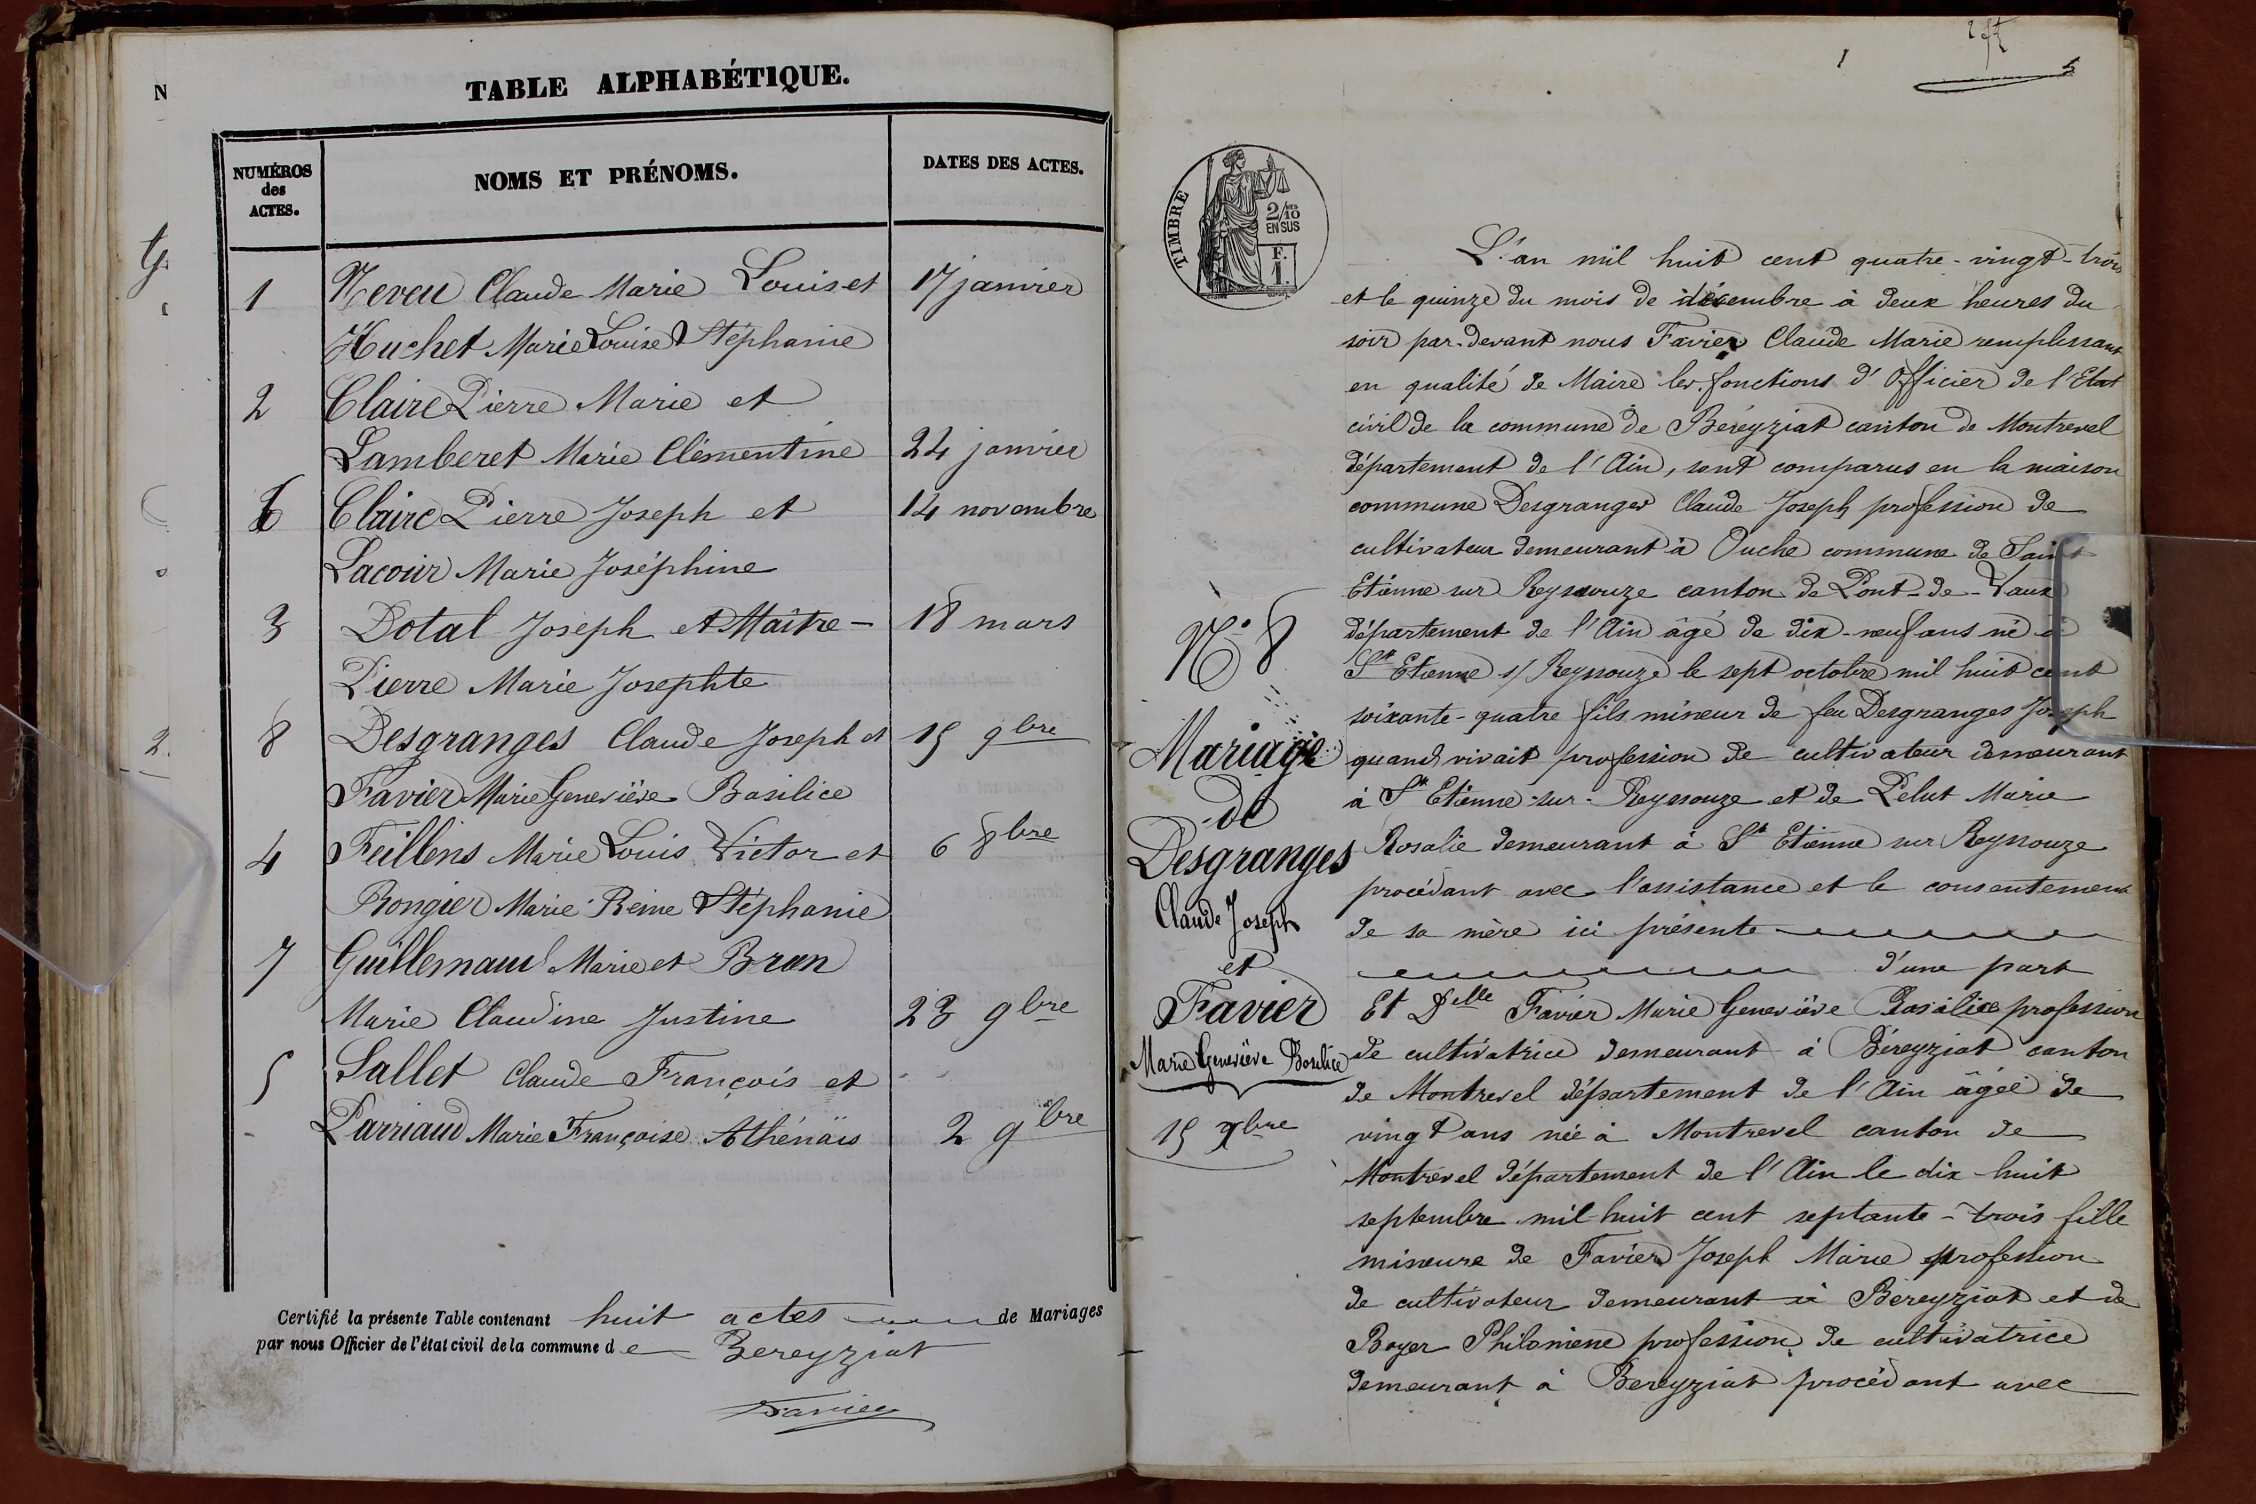 N
TABLE ALPHABÉTIQUE.
NUMÉROS des ACTES.
NOMS ET PRÉNOMS.
DATES DES ACTES.
1 Neveu Claude Marie Louis et 17 janvier
Huchet Marie Louise Stéphanie
2 Claire Pierre Marie et
Lamberet Marie Clémentine 24 janvier
6 Claire Pierre Joseph et 14 novembre
Lacour Marie Joséphine
3 Dotal Joseph et Maître- 18 mars
Pierre Marie Josephte
8 Desgranges Claude Joseph et 15 9bre
Favier Marie Geneviève Basilice
4 Feillens Marie Louis Victor et 6 8bre
Rongier Marie Reine Stéphanie
7 Guillemaud Marie et Bron
Marie Claudine Justine 23 9bre
5 Sallet Claude François et
Parriaud Marie Françoise Athénaïs 2 9bre
Certifié la présente Table contenant huit actes de Mariages
par nous Officier de l'état civil de la commune de Bereyziat
Favier
1
5
TIMBRE
2/10 EN SUS
F. 1.
L'an mil huit cent quatre-vingt-trois
et le quinze du mois de décembre à deux heures du
soir par-devant nous Favier Claude Marie remplissant
en qualité de Maire les fonctions d'Officier de l'Etat
civil de la commune de Béréyziat canton de Montrevel
département de l'Ain, sont comparus en la maison
commune Desgranges Claude Joseph profession de
cultivateur demeurant à Ouche commune de Saint
Etienne sur Reyssouze canton de Pont-de-Vaux
département de l'Ain âgé de dix-neuf ans né à
St Etienne s/ Reyssouze le sept octobre mil huit cent
soixante-quatre fils mineur de feu Desgranges Joseph
quand vivait profession de cultivateur demeurant
à St Etienne-sur-Reyssouze et de Pelut Marie
Rosalie demeurant à St Etienne sur Reyssouze
procédant avec l'assistance et le consentement
de sa mère ici présente
d'une part
Et Delle Favier Marie Geneviève Basilice profession
de cultivatrice demeurant à Béreyziat canton
de Montrevel département de l'Ain âgée de
vingt ans née à Montrevel canton de
Montrevel département de l'Ain le dix-huit
septembre mil huit cent septante-trois fille
mineure de Favier Joseph Marie profession
de cultivateur demeurant à Béreyziat et de
Boyer Philomène profession de cultivatrice
demeurant à Bereyziat procédant avec
No 8
Mariage
de
Desgranges
Claude Joseph
et
Favier
Marie Geneviève Basilice
15 Xbre